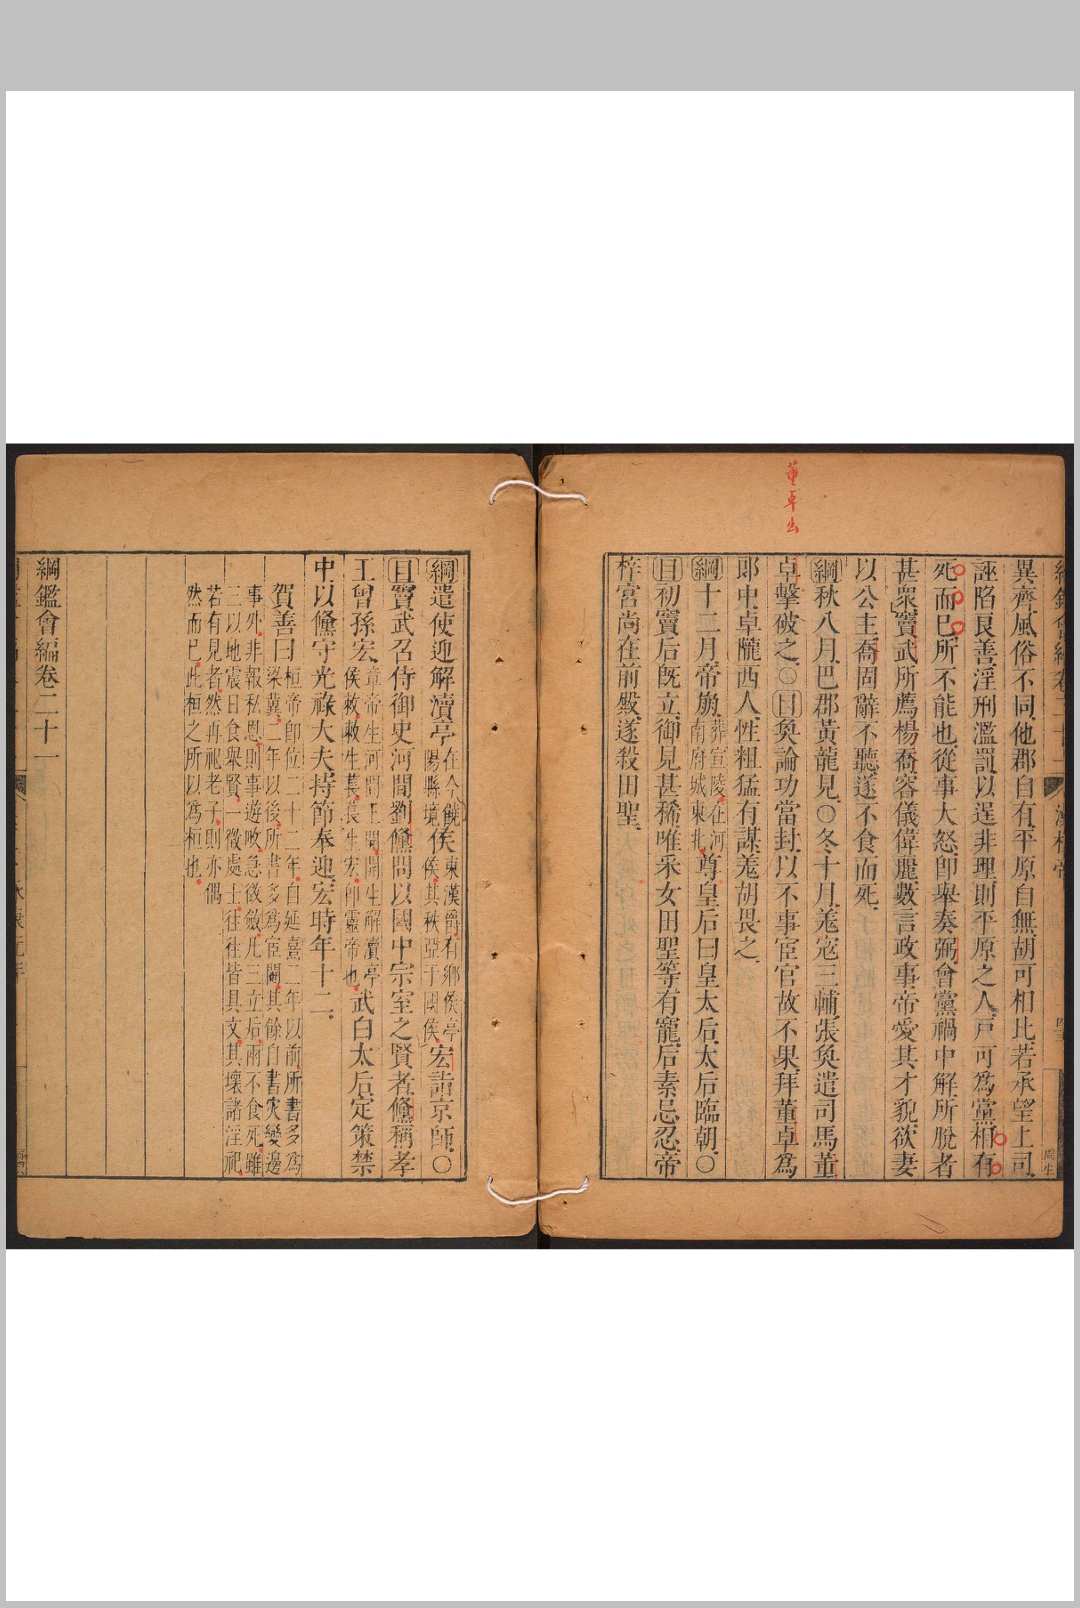 董卓出
異齊風俗不同他郡自有平原自無胡可相比若承望上司
誣陷良善淫刑濫罰以逞非理則平原之人戸可爲黨相有
死而已所不能也從事大怒卽舉奏弼會黨禍中解所脫者
甚衆竇武所薦楊喬容儀偉麗數言政事帝愛其才貌欲妻
以公主喬固辭不聽遂不食而死
綱秋八月巴郡黃龍見〇冬十月羗寇三輔張奐遣司馬董
卓擊破之〇目奐論功當封以不事宦官故不果拜董卓爲
郎中卓隴西人性粗猛有謀羗胡畏之
綱十二月帝崩葬宣陵在河南府城東北尊皇后曰皇太后太后臨朝〇
目初竇后旣立御見甚稀唯采女田聖等有寵后素忌忍帝
梓宮尚在前殿遂殺田聖
綱遣使迎解瀆亭在今饒陽縣境侯東漢爵有鄉侯亭侯其秩亞于國侯宏詣京師〇
目竇武召侍御史河間劉儵問以國中宗室之賢者儵稱孝
王曾孫宏章帝生河間王開開生解瀆亭侯淑淑生萇萇生宏卽靈帝也武白太后定策禁
中以儵守光祿大夫持節奉迎宏時年十二
賀善曰桓帝卽位二十二年自延熹二年以前所書多爲
梁冀二年以後所書多爲宦閹其餘自書灾變邊
事外非報私恩則事遊畋急徵斂凡三立后兩不食死雖
三以地震日食舉賢一徵處士往往皆具文其壞諸淫祀
若有見者然再祀老子則亦偶
然而已此桓之所以爲桓也
綱鑑會編卷二十一